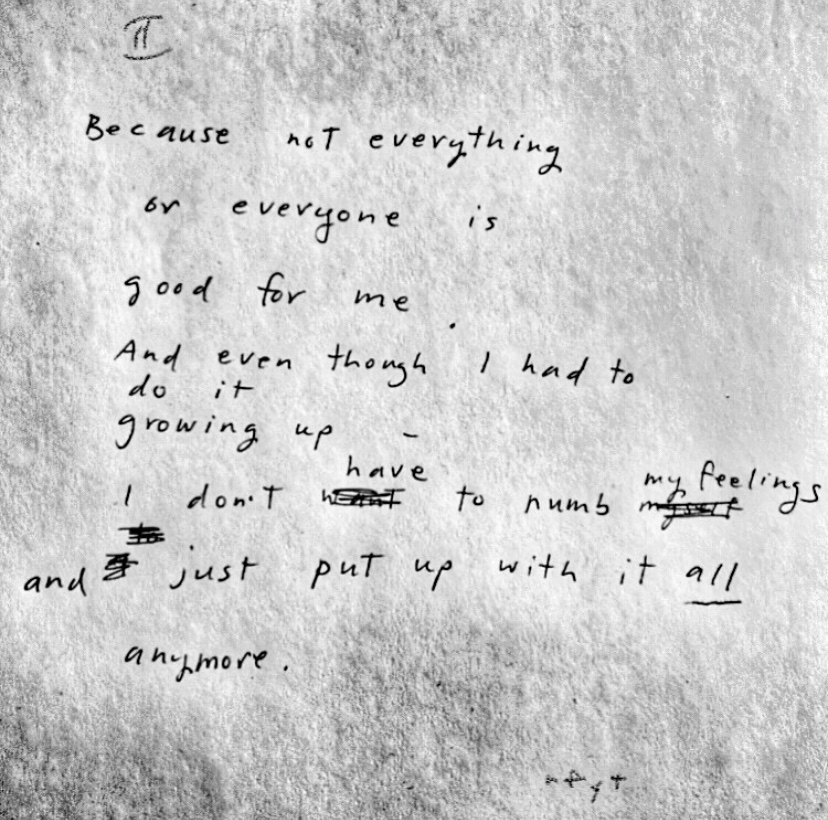 II
Because not everything
or everyone is
good for me.
And even though I had to
do it
growing up –
I don't have to numb my feelings
and just put up with it all
anymore.